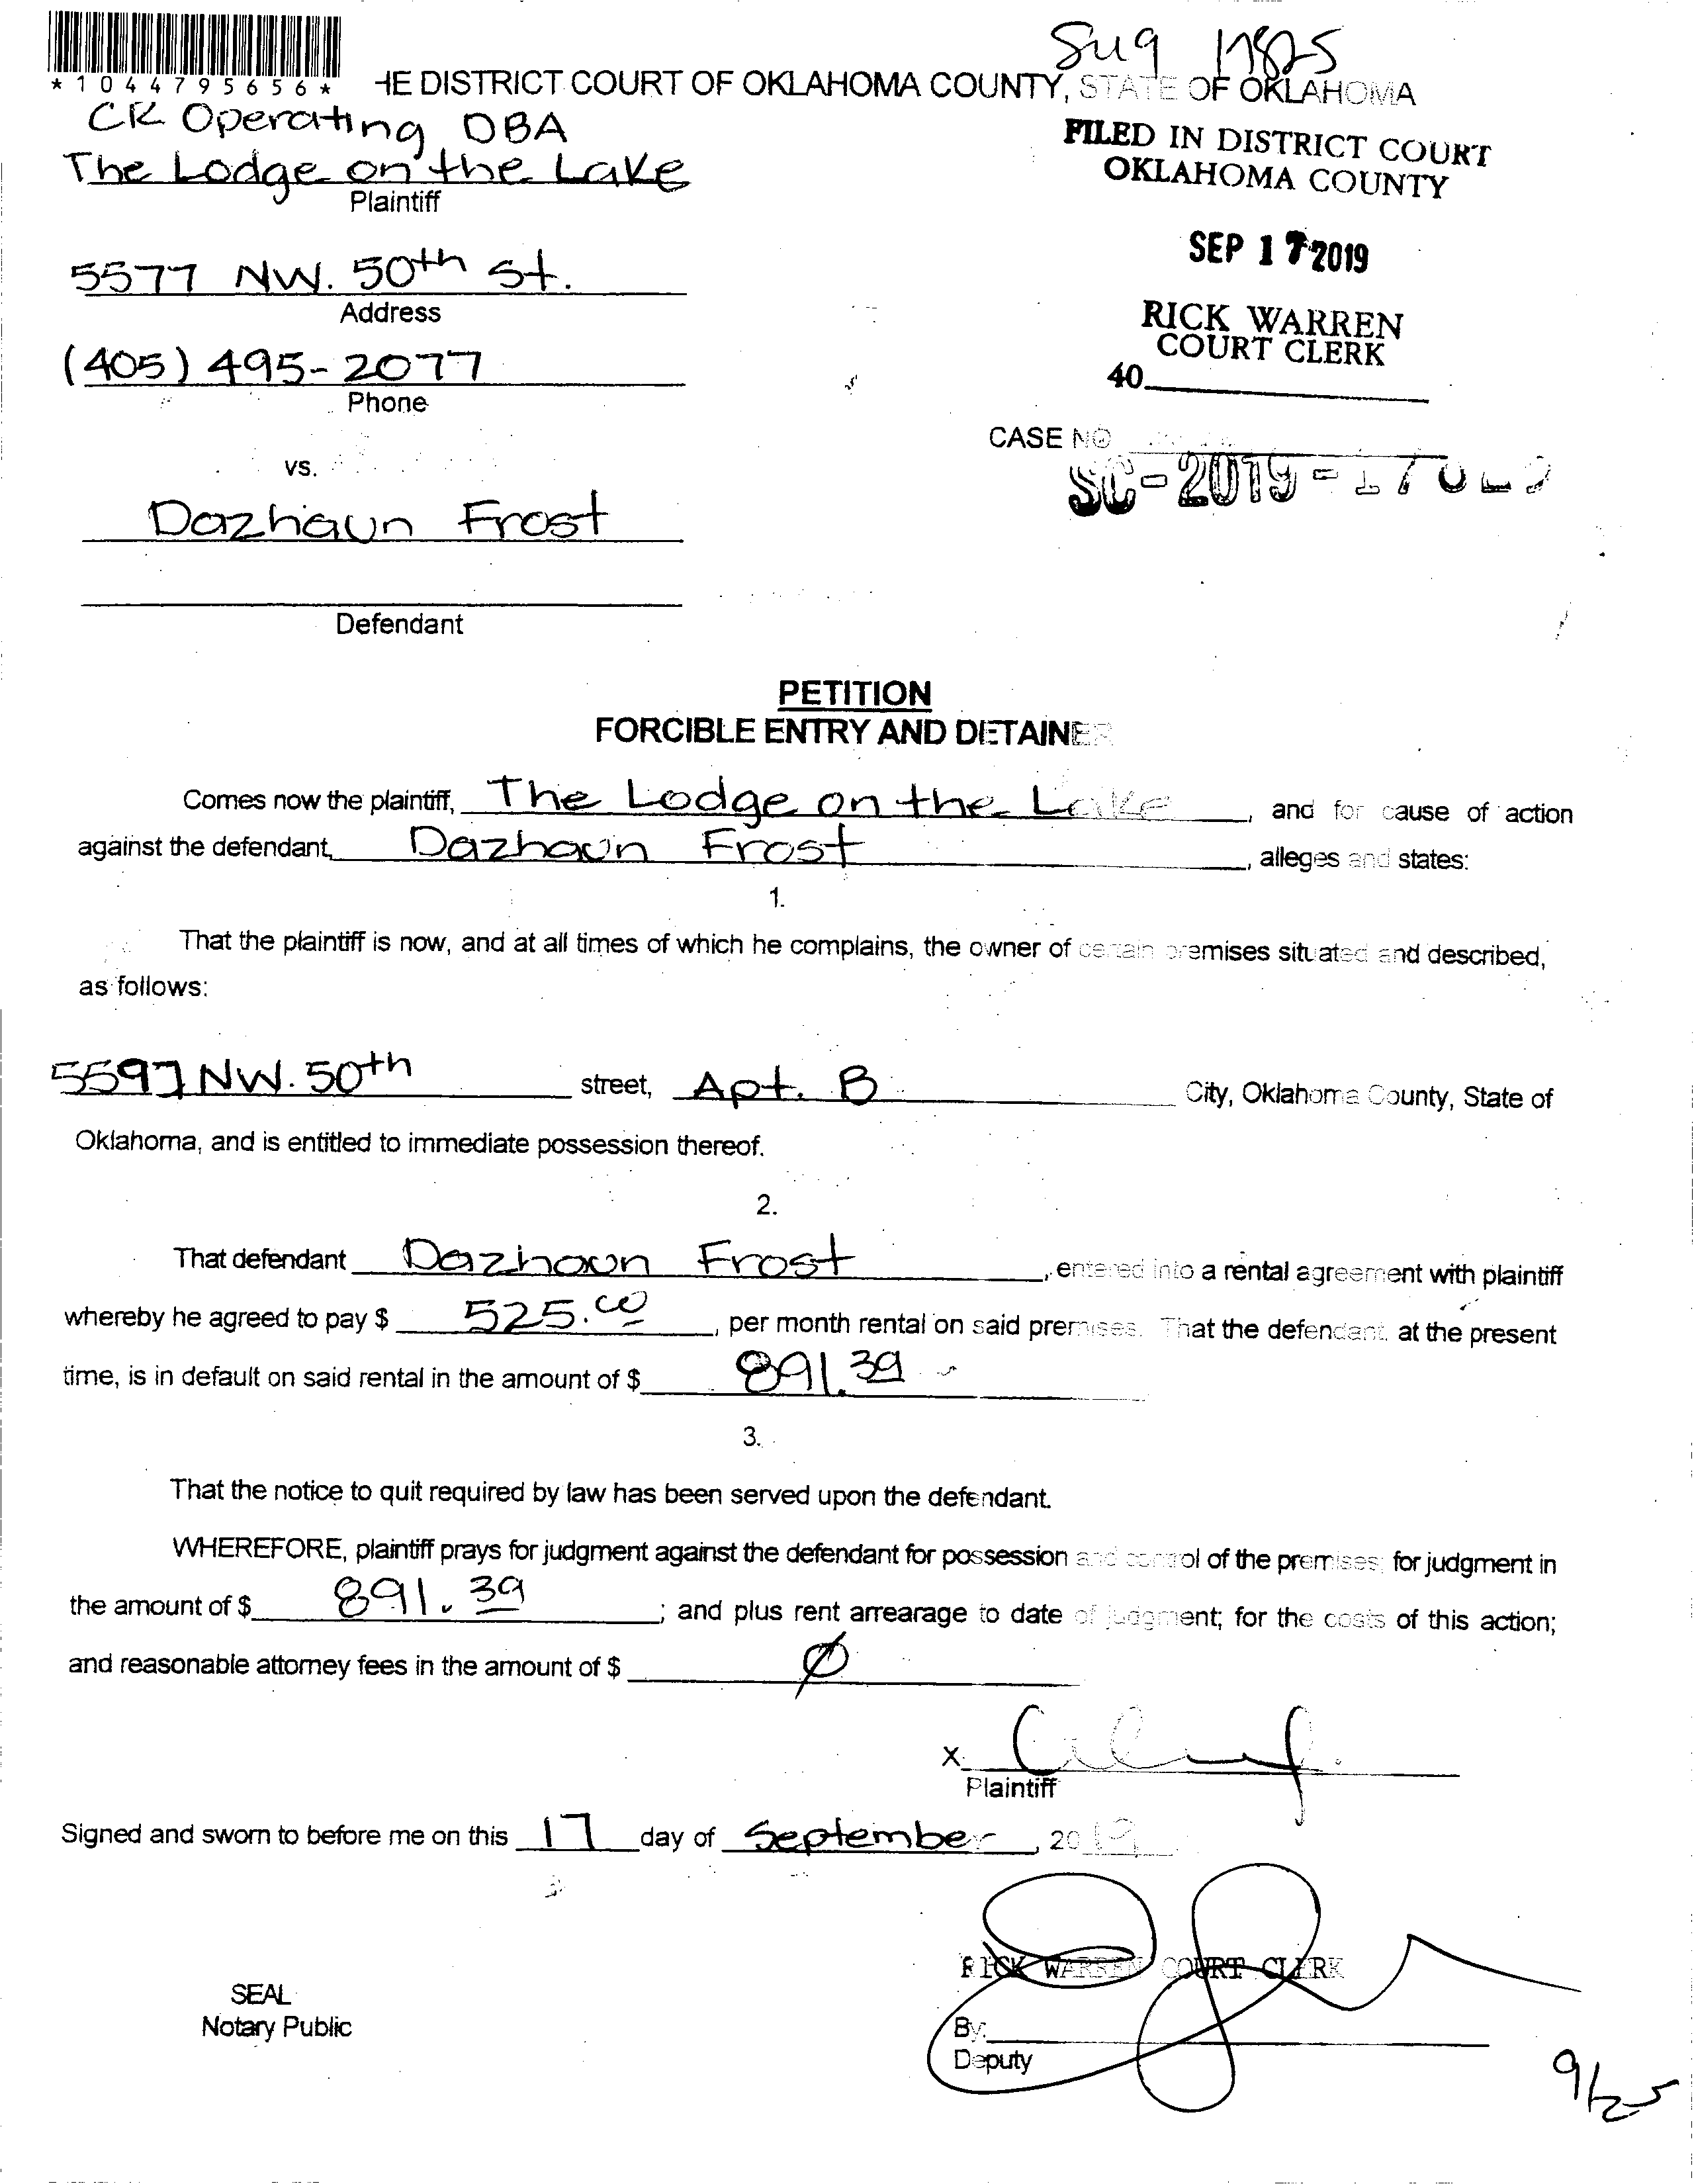 *1044795656*
HE DISTRICT COURT OF OKLAHOMA COUNTY, STATE OF OKLAHOMA
CK Operating DBA
The Lodge on the Lake
Plaintiff
FILED IN DISTRICT COURT
OKLAHOMA COUNTY
SEP 17 2019
5577 NW. 50th St.
Address
RICK WARREN
COURT CLERK
40
(405) 495-2077
Phone
CASE NO
SC-2019-
vs.
Dazhaun Frost
Defendant
PETITION
FORCIBLE ENTRY AND DETAINER
Comes now the plaintiff, The Lodge on the Lake, and for cause of action
against the defendant, Dazhaun Frost, alleges and states:
1.
That the plaintiff is now, and at all times of which he complains, the owner of certain premises situated and described,
as follows:
5597 NW. 50th street, Apt. B City, Oklahoma County, State of
Oklahoma, and is entitled to immediate possession thereof.
2.
That defendant Dazhaun Frost, entered into a rental agreement with plaintiff
whereby he agreed to pay $ 525.00, per month rental on said premises. That the defendant, at the present
time, is in default on said rental in the amount of $ 891.39
3.
That the notice to quit required by law has been served upon the defendant.
WHEREFORE, plaintiff prays for judgment against the defendant for possession and control of the premises; for judgment in
the amount of $ 891.39; and plus rent arrearage to date of judgment; for the costs of this action;
and reasonable attorney fees in the amount of $ Ø
X
Plaintiff
Signed and sworn to before me on this 17 day of September, 2019
RICK WARREN COURT CLERK
SEAL
Notary Public
By:
Deputy
9/25